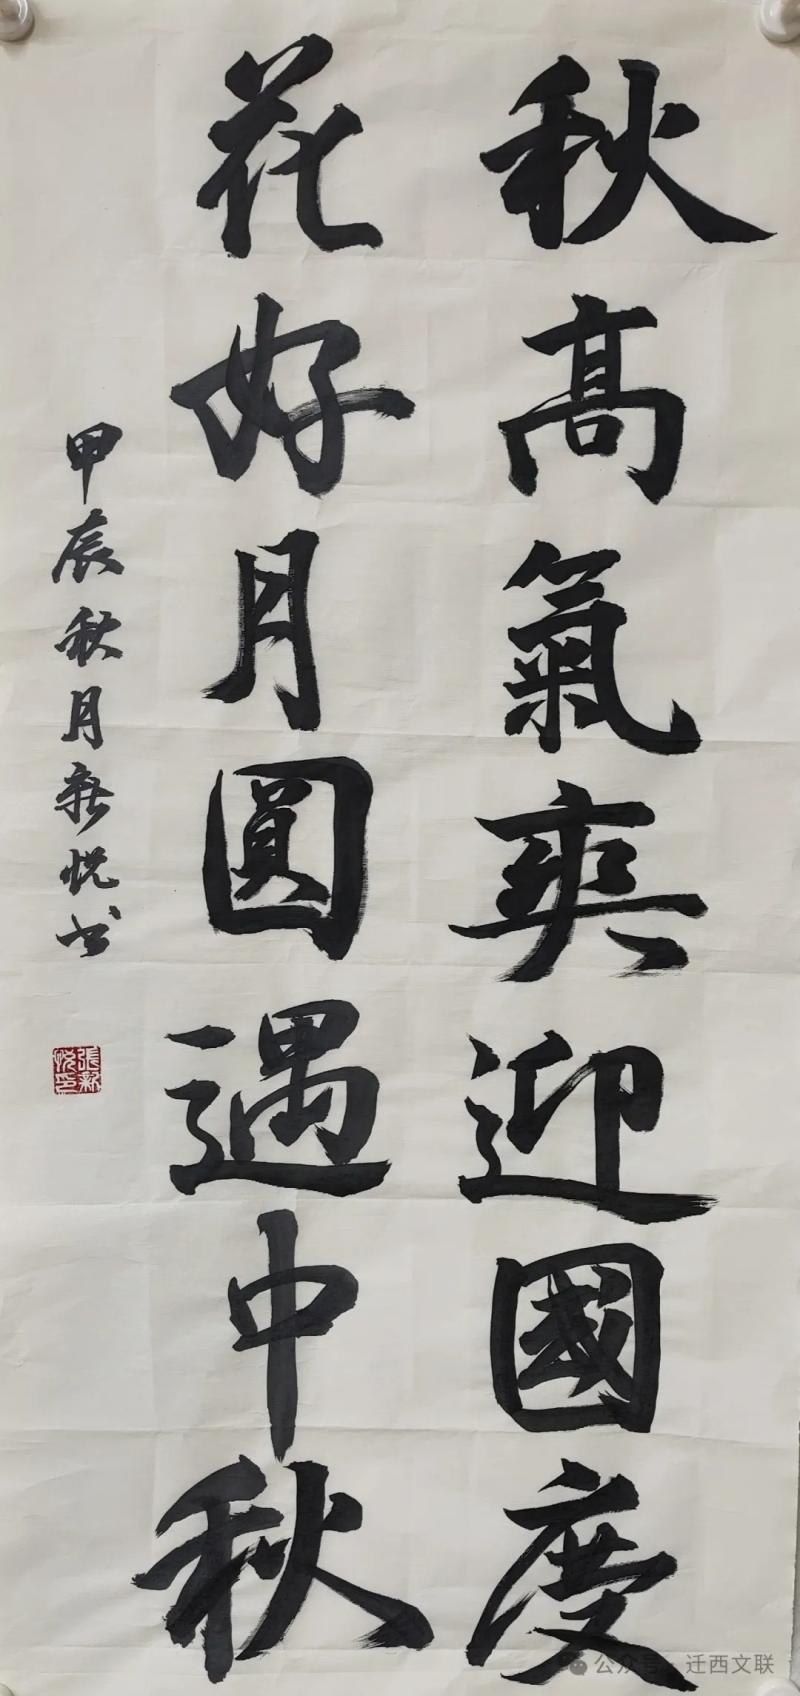 秋高氣爽迎國度
花好月圓遇中秋
甲辰秋月新悦书
張新悦印
公众号·迁西文联